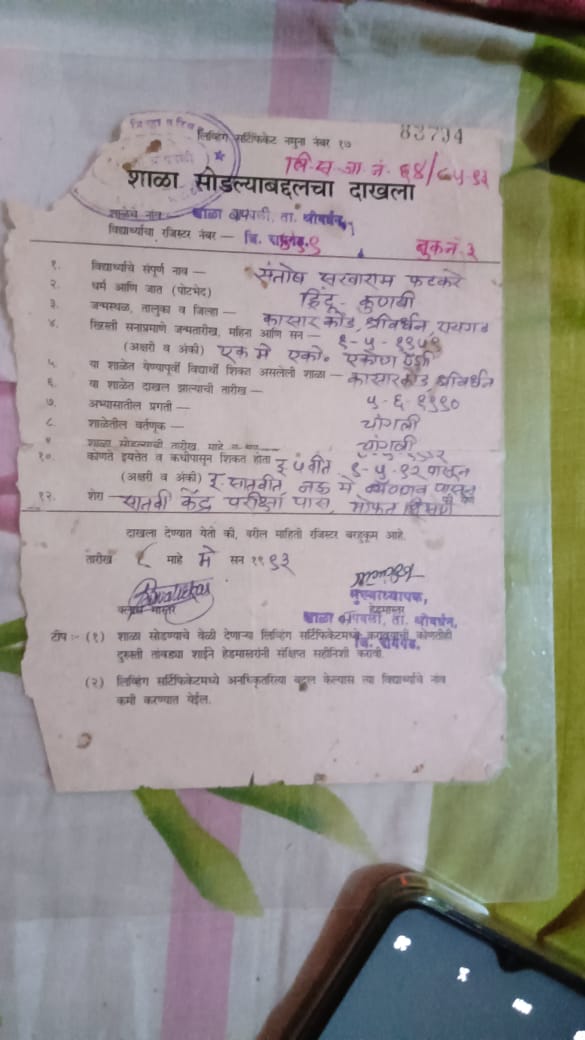 लिव्हिंग सर्टिफिकेट नमुना नंबर १७
83794
लि.स.जा.नं. ६४/
शाळा सोडल्याबद्दलचा दाखला
शाळेचे नांव शाळा ता. श्रीवर्धन,
विद्यार्थ्याचा रजिस्टर नंबर — जि.
बुक नं. ३
१. विद्यार्थ्याचे संपूर्ण नाव — संतोष सखाराम फटकरे
२. धर्म आणि जात (पोटभेद) हिंदू - कुणबी
३. जन्मस्थळ, तालुका व जिल्हा — कासार कोंड, श्रीवर्धन, रायगड
४. ख्रिस्ती सनाप्रमाणे जन्मतारीख, महिना आणि सन —
(अक्षरी व अंकी) एक मे
५. या शाळेत येण्यापूर्वी विद्यार्थी शिकत असलेली शाळा — कासारकोंड श्रीवर्धन
६. या शाळेत दाखल झाल्याची तारीख — ५-६-१९९०
७. अभ्यासातील प्रगती — चांगली
८. शाळेतील वर्तणूक — चांगली
९ शाळा सोडल्याची तारीख, माहे व सन
१०. कोणते इयत्तेत व कधीपासून शिकत होता
(अक्षरी व अंकी) इ. सातवीत मे पासून
१२. शेरा — सातवी केंद्र परीक्षा पास,
दाखला देण्यात येतो की, वरील माहिती रजिस्टर बरहुकूम आहे.
तारीख माहे मे सन १९९३
मुख्याध्यापक,
मास्तर हेडमास्तर
शाळा ता. श्रीवर्धन,
जि. रायगड.
टीप :- (१) शाळा सोडण्याचे वेळी देणाऱ्या लिव्हिंग सर्टिफिकेटमध्ये करावयाची कोणतीही
दुरुस्ती तांबड्या शाईने हेडमास्तरांनी संक्षिप्त सहीनिशी करावी.
(२) लिव्हिंग सर्टिफिकेटमध्ये अनधिकृतरित्या बदल केल्यास त्या विद्यार्थ्याचे नांव
कमी करण्यात येईल.